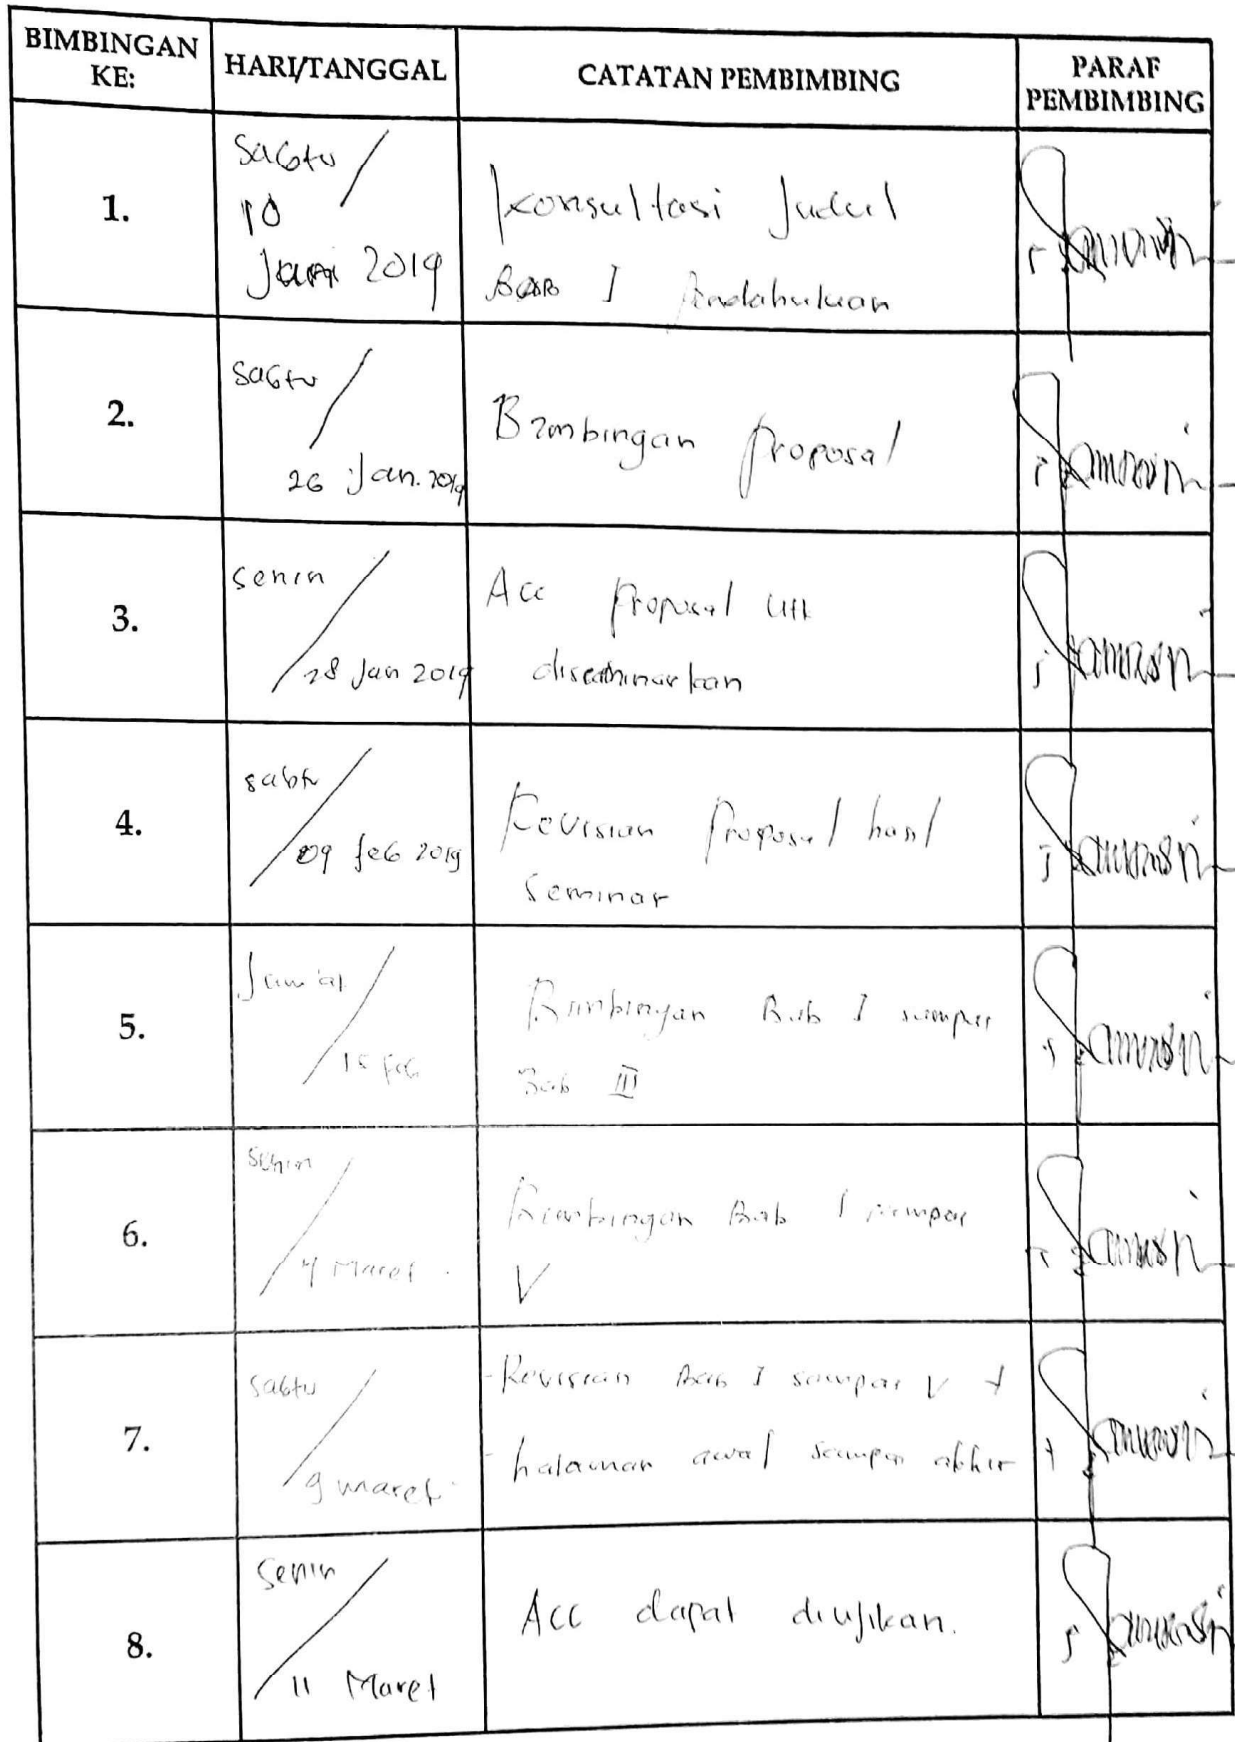 BIMBINGAN
KE:
HARI/TANGGAL
CATATAN PEMBIMBING
PARAF
PEMBIMBING
1.
Sabtu /
10
Jani 2019
Konsultasi Judul
BAB I Pendahuluan
2.
Sabtu /
26 Jan. 2019
Bimbingan Proposal
3.
Senin /
28 Jan 2019
Acc Proposal utk
diseminarkan
4.
Sabtu /
09 Feb 2019
Revisian Proposal hasil
Seminar
5.
Jum'at /
15 Feb
Bimbingan Bab I sampai
Bab III
6.
Senin /
4 Maret
Bimbingan Bab I sampai
V
7.
Sabtu /
9 Maret
- Revisian Bab I sampai V +
- halaman awal sampai akhir
8.
Senin /
11 Maret
Acc dapat diujikan.